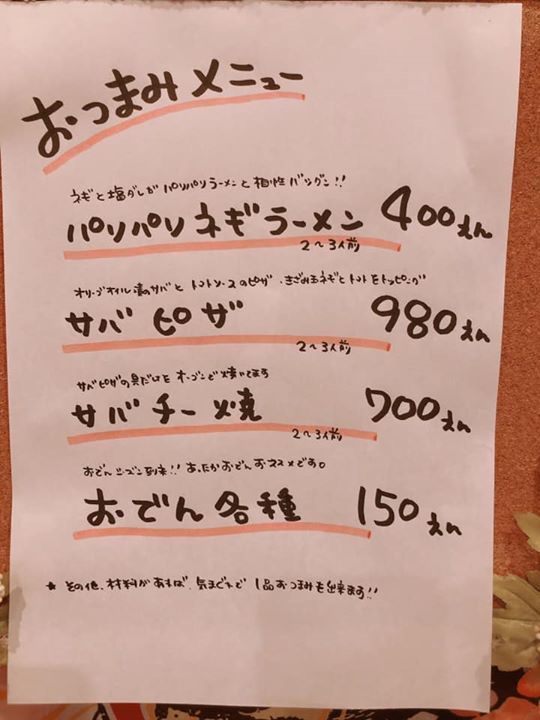 おつまみメニュー
ネギと塩ダレがパリパリラーメンと相性バツグン!!
パリパリネギラーメン 400えん
2〜3人前
オリーブオイル漬のサバとトマトソースのピザ、きざみ玉ネギとトマトをトッピング
サバピザ 980えん
2〜3人前
サバピザの具だけをオーブンで焼いてます
サバチー焼 700えん
2〜3人前
おでんシーズン到来!! あったかおでんおススメです。
おでん各種 150えん
★その他、材料があれば、気まぐれで1品おつまみも出来ます!!